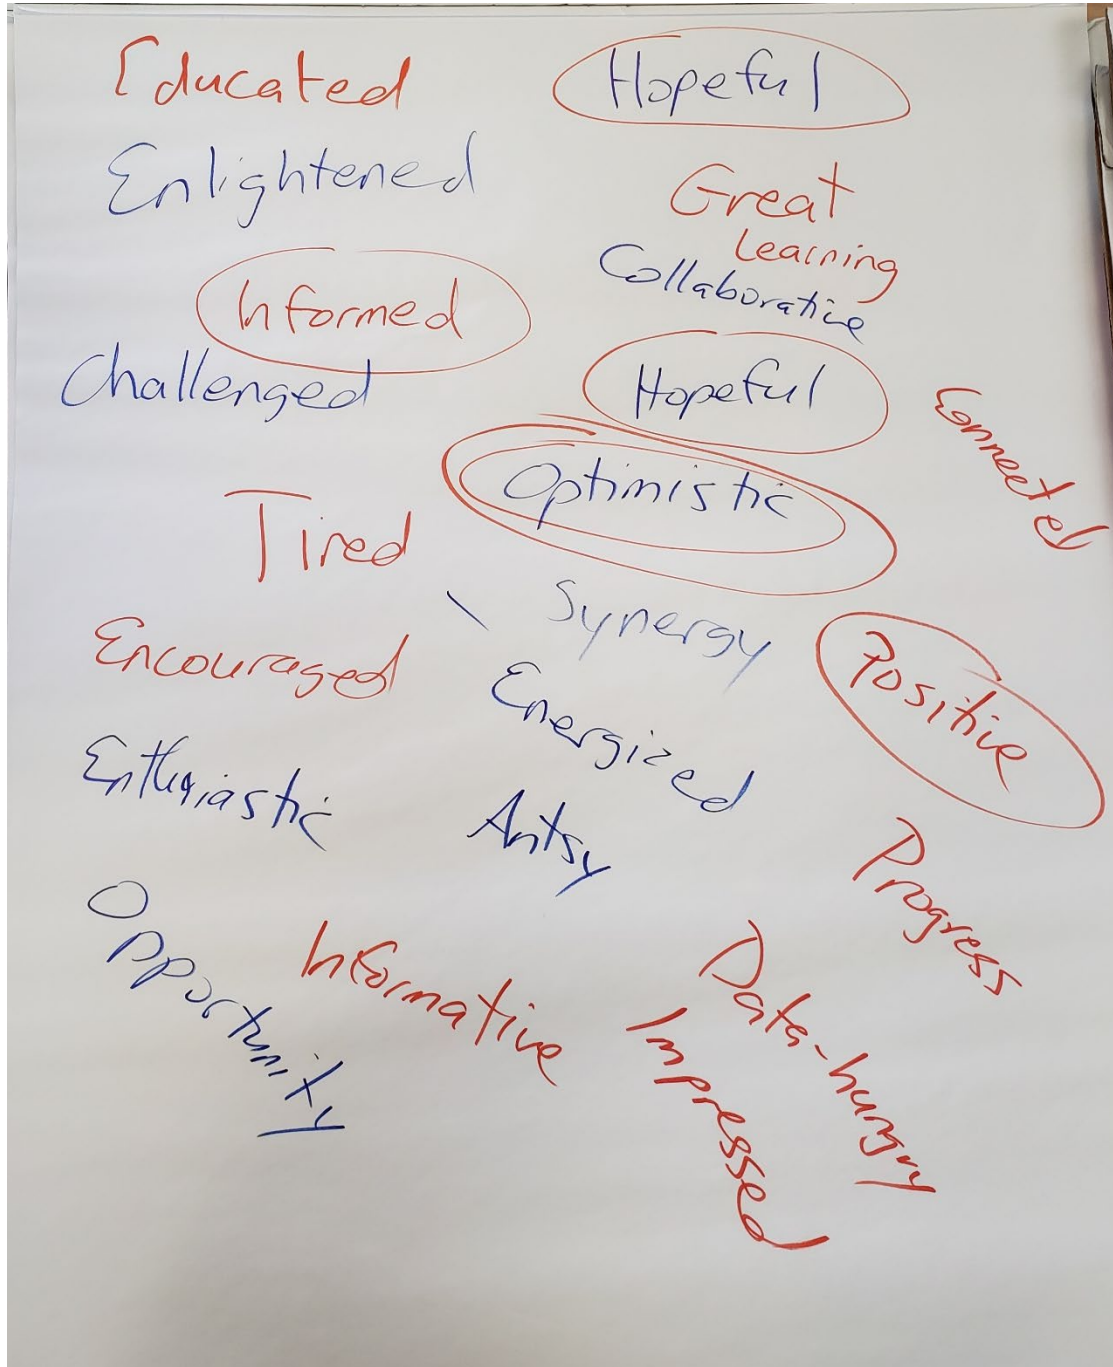 Educated
Hopeful
Enlightened
Great
Learning
Collaborative
Informed
Challenged
Hopeful
Connected
Optimistic
Tired
Synergy
Encouraged
Positive
Energized
Enthusiastic
Antsy
Progress
Opportunity
Informative
Data-hungry
Impressed